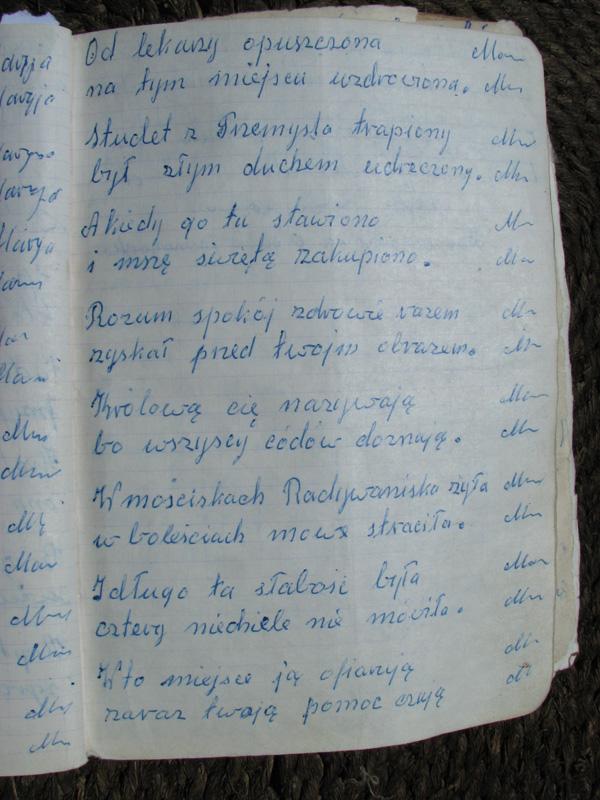 Od lekarzy opuszczona Mar
na tym miejscu uzdrowiona. Mar
Studet z Przemysla trapiony Mar
był złym duchem udręczony. Mar
A kiedy go tu stawiono M
i mszę swiętą zakupiono. Mar
Rozum spokój zdrowie razem Mar
zyskał przed twojm obrazem. M
Królową cię nazywają Mar
bo wszyscy códów doznają. Mar
W mościskach Radywaniska żyła Mar
w boleściach mowe straciła. Mar
I długo ta słabość była Mar
cztery niedziele nie mówiła. Mar
W to miejsce ją ofiarują Mar
zaraz twoją pomoc czują M